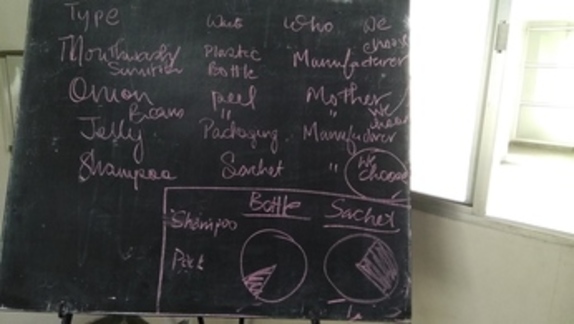 Type Waste Who We choose
Mouthwash/ Plastic Manufacturer
Sanitizer Bottle
Onion peel Mother We choose
Beans " "
Jelly Packaging Manufacturer
Shampoo Sachet " We choose
Bottle Sachet
Shampoo